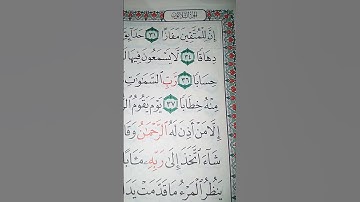 الجزء الثلاثون
إِنَّ لِلْمُتَّقِينَ مَفَازًا ٣١ حَدَائِقَ
دِهَاقًا ٣٤ لَّا يَسْمَعُونَ فِيهَا
حِسَابًا ٣٦ رَّبِّ ٱلسَّمَٰوَٰتِ
مِنْهُ خِطَابًا ٣٧ يَوْمَ يَقُومُ
إِلَّا مَنْ أَذِنَ لَهُ ٱلرَّحْمَٰنُ وَقَا
شَآءَ ٱتَّخَذَ إِلَىٰ رَبِّهِۦ مَـَٔابًا
يَنظُرُ ٱلْمَرْءُ مَا قَدَّمَتْ يَدَا